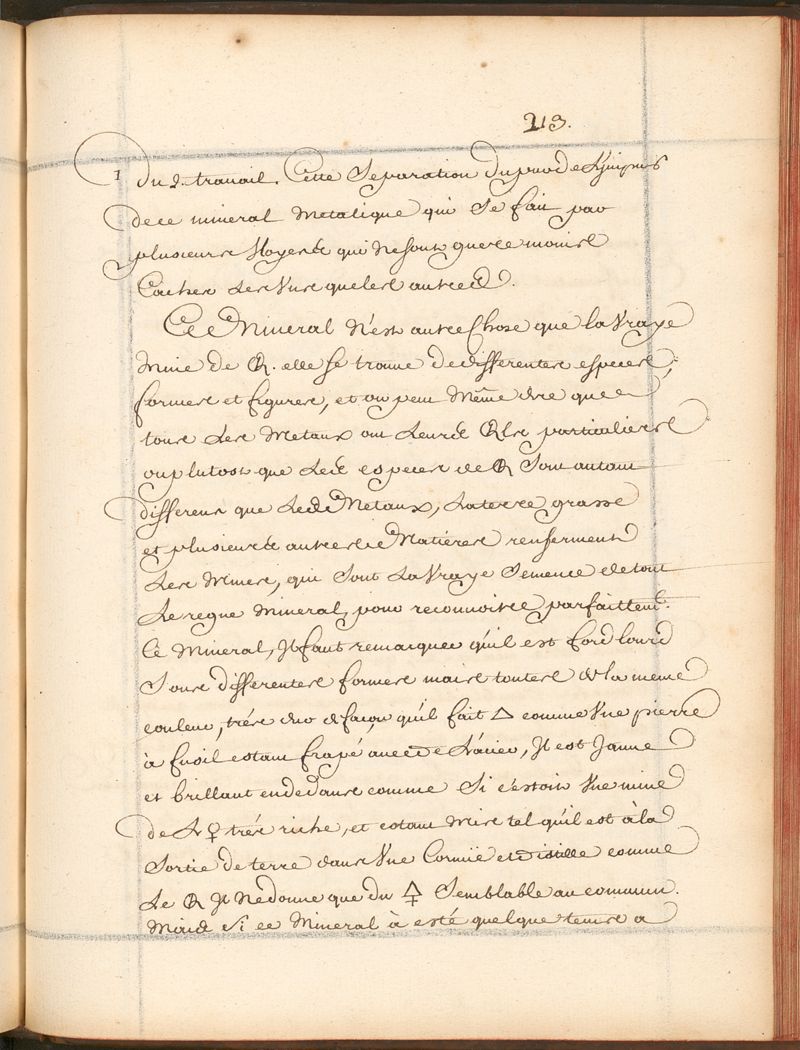 213.
1 du 2. travail. Cette Separation du pur de L'jmpur
de ce mineral metalique qui se fait par
plusieurs Moyens qui ne sont guere moins
Cachez Les Uns que les autres.
Ce Mineral n'est autre Chose que la Vraye
mine de . elle se trouve de differentes especes,
formes et figures, et on peut Même dire que
tous Les Metaux ont Leurs particuliers
ou plutost que Les especes de sont autant
differens que Les Metaux, La terre grasse
et plusieurs autres Matieres renferment
Les Mines, qui sont La Vraye Semence de tout
Le regne Mineral, pour reconnoitre parfaittemt.
Ce Mineral, Jl faut remarquer qu'il est ford lourd
Sous differentes formes mais toutes de la meme
couleur, trés dur de façon qu'il fait 🜂 comme Une pierre
à fusil estant frapé avec de L'acier, Jl est Jaune
et brillant en dedans comme Si c'estoit Une mine
de L'♀ trés riche, et estant Mis tel qu'il est à la
Sortie de terre dans Une Cornüe et distille comme
Le Jl Ne donne que du 🜍 Semblable au commun.
Mais Si ce Mineral à esté quelque tems a